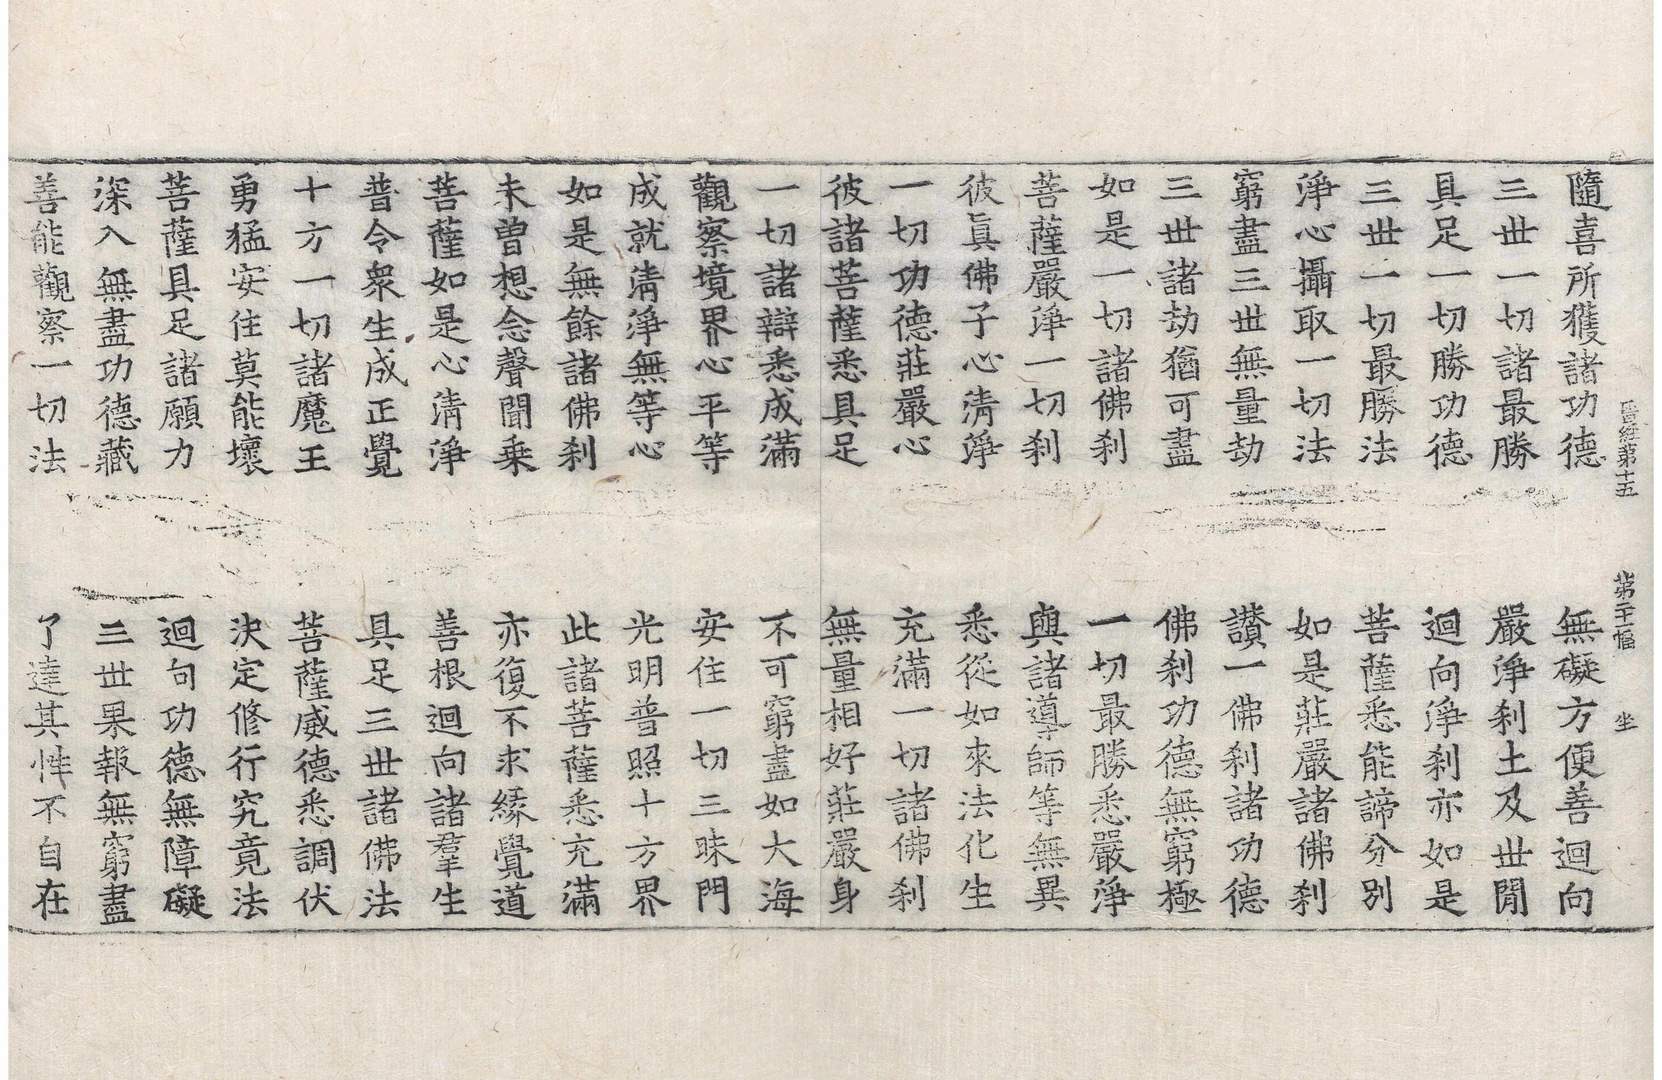 晋經第十五 坐
隨喜所獲諸功德 無礙方便善迴向
三世一切諸最勝 嚴淨刹土及世閒
具足一切勝功德 迴向淨刹亦如是
三世一切最勝法 菩薩悉能諦分別
淨心攝取一切法 如是莊嚴諸佛刹
窮盡三世無量劫 讚一佛刹諸功德
三世諸劫猶可盡 佛刹功德無窮極
如是一切諸佛刹 一切最勝悉嚴淨
菩薩嚴淨一切刹 與諸導師等無異
彼眞佛子心淸淨 悉從如來法化生
一切功德莊嚴心 充滿一切諸佛刹
彼諸菩薩悉具足 無量相好莊嚴身
一切諸辯悉成滿 不可窮盡如大海
觀察境界心平等 安住一切三昧門
成就淸淨無等心 光明普照十方界
如是無餘諸佛刹 此諸菩薩悉充滿
未曽想念聲聞乘 亦復不求緣覺道
菩薩如是心淸淨 善根迴向諸羣生
普令衆生成正覺 具足三世諸佛法
十方一切諸魔王 菩薩威德悉調伏
勇猛安住莫能壞 決定修行究竟法
菩薩具足諸願力 迴向功德無障礙
深入無盡功德藏 三世果報無窮盡
善能觀察一切法 了達其性不自在